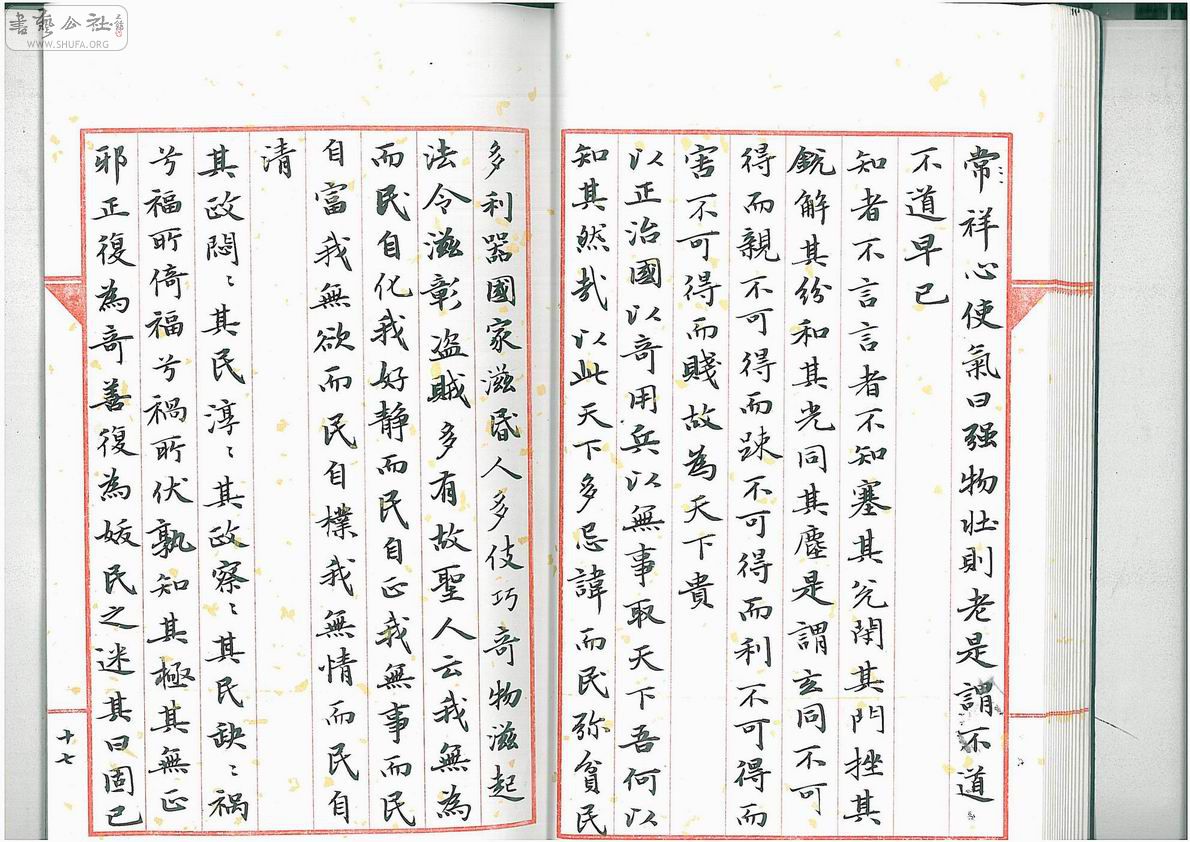 書藝公社
WWW.SHUFA.ORG
常祥心使氣曰强物壯則老是謂不道
不道早已
知者不言言者不知塞其兑閉其門挫其
銳解其紛和其光同其塵是謂玄同不可
得而親不可得而踈不可得而利不可得而
害不可得而賤故為天下貴
以正治國以奇用兵以無事取天下吾何以
知其然㢤以此天下多忌諱而民弥貧民
多利器國家滋昏人多伎巧奇物滋起
法令滋彰盗賊多有故聖人云我無為
而民自化我好静而民自正我無事而民
自富我無欲而民自樸我無情而民自
清
其政悶〻其民淳〻其政察〻其民缺〻禍
兮福所倚福兮禍所伏孰知其極其無正
邪正復為奇善復為妖民之迷其曰固已
十七